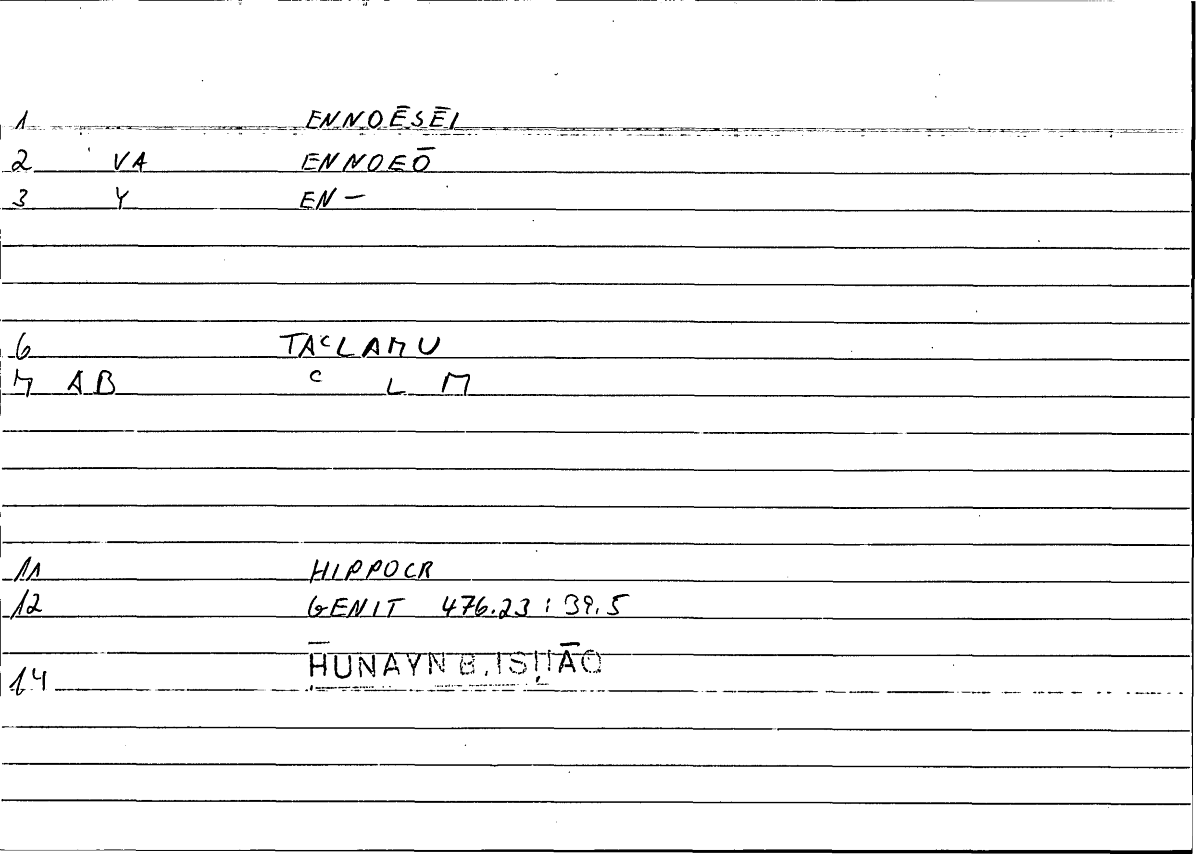 1 ENNOĒSĒI
2 VA ENNOEŌ
3 Y EN-
6 TAᶜLAMU
7 AB ᶜ L M
11 HIPPOCR
12 GENIT 476.23 : 39.5
14 ḤUNAYN B. ISḤĀQ